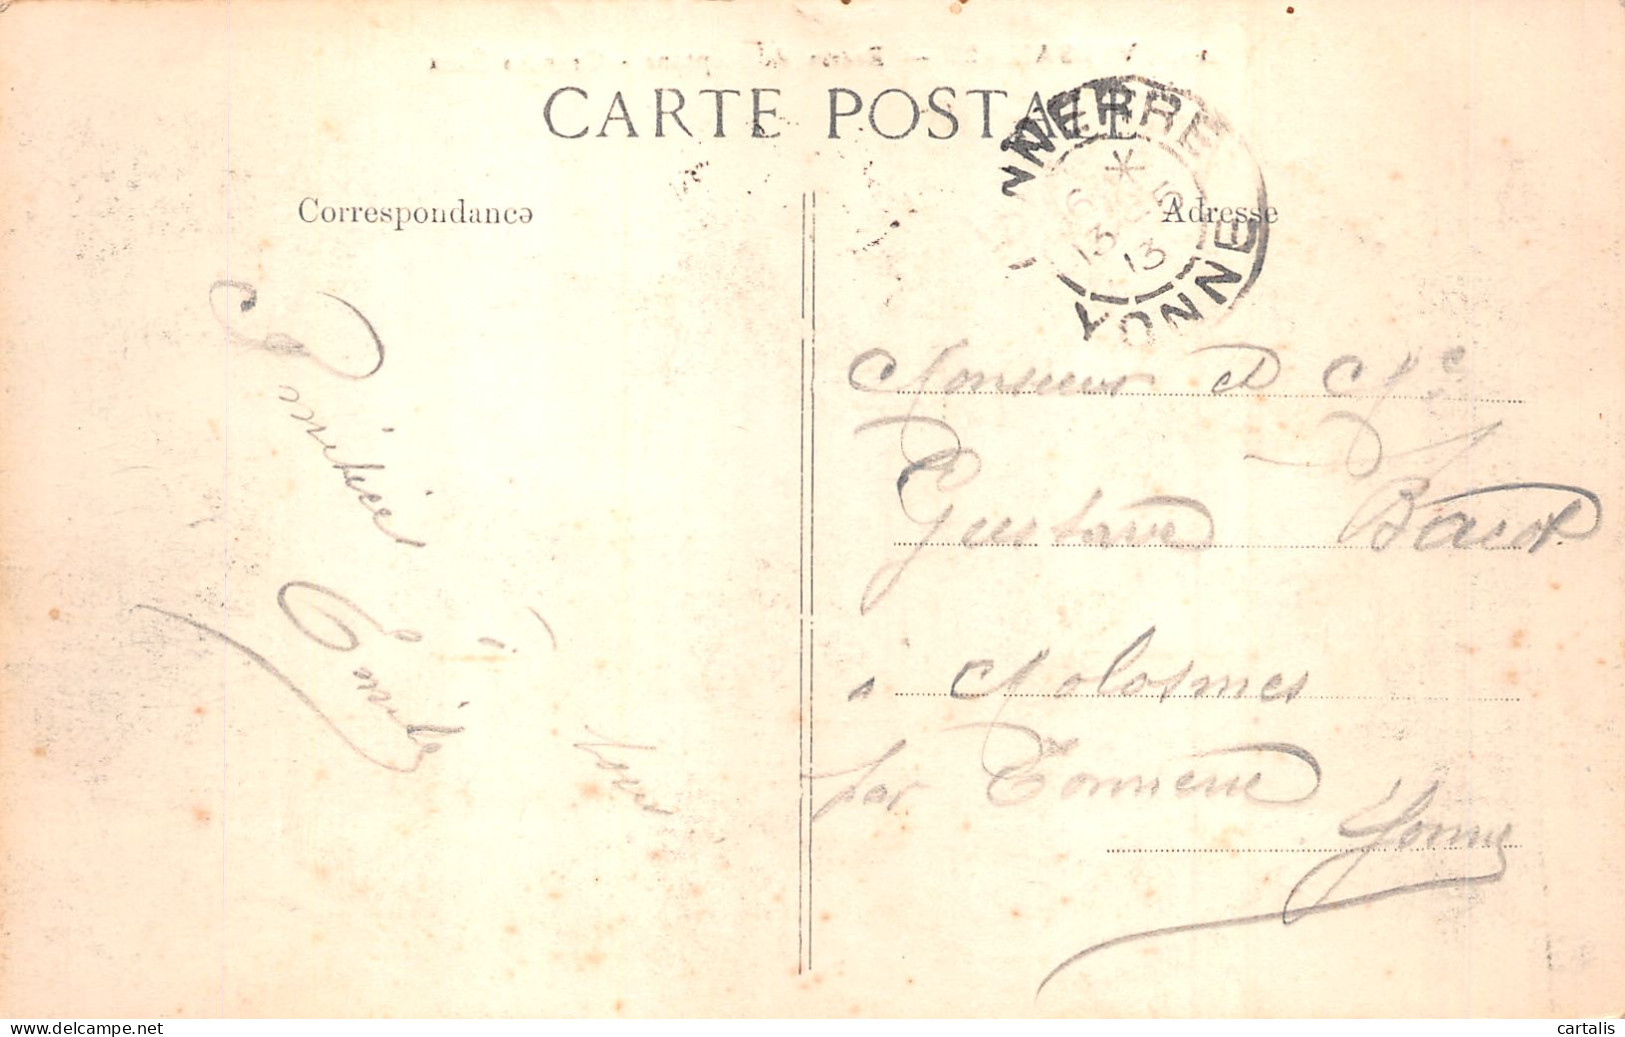 CARTE POSTALE
Correspondance
Adresse
TONNERRE
6 * 5
13 13
YONNE
Amitiés
Emile
Monsieur et Me
Gustave Bacot
à Molosmes
par Tonnerre
Yonne
cartalis